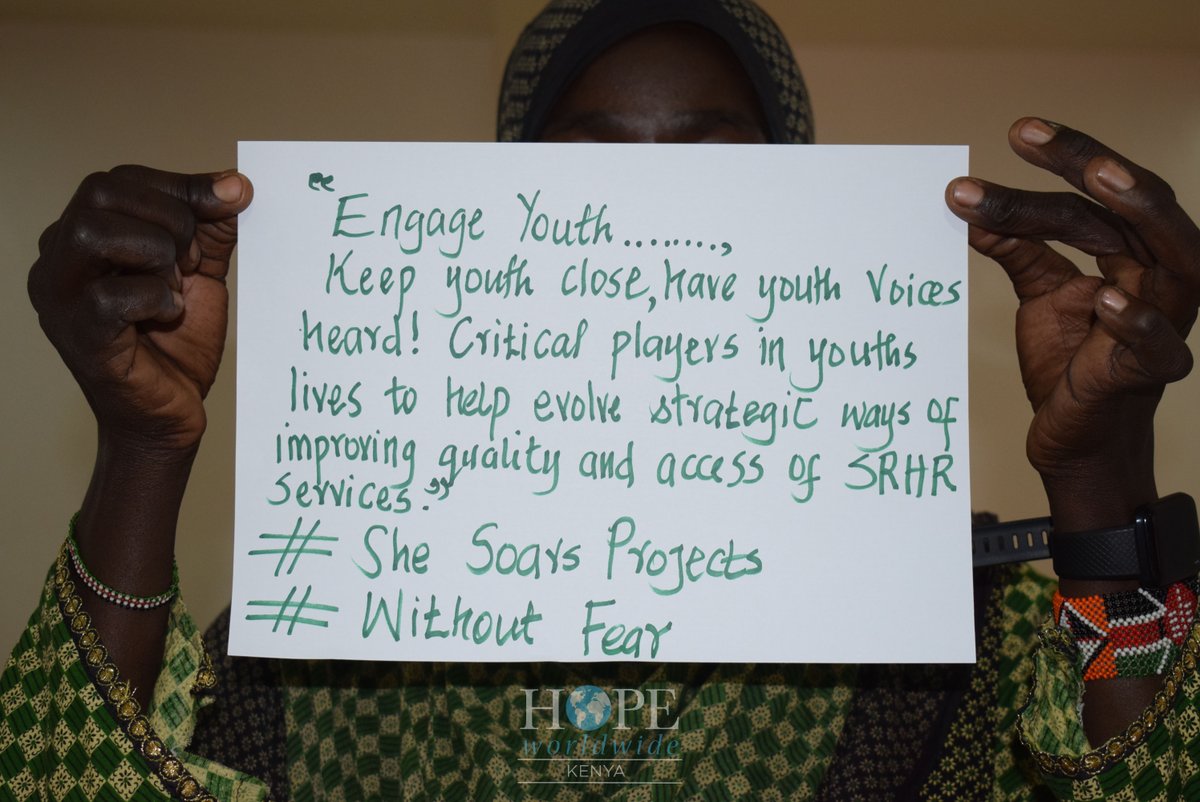 “Engage Youth ........,
Keep youth close, have youth Voices
heard! Critical players in youths
lives to help evolve strategic ways of
improving quality and access of SRHR
Services.”
# She Soars Projects
# Without Fear
HOPE
worldwide
KENYA